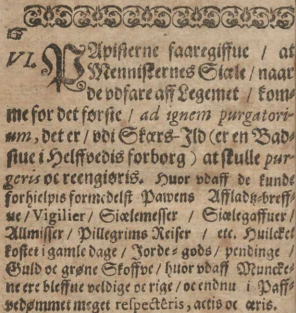 VI. PApisterne faaregiffue / at
Menniskernes Siæle / naar
de vdfare aff Legemet / kom-
me for det første / ad ignem purgatori-
um, det er / vdi Skærs-Ild (er en Bad-
stue i Helffvedis forborg) at skulle pur-
geris oc reengiøris. Huor vdaff de kunde
forhielpis formedelst Pawens Afflads-breff-
ue / Vigilier / Siælemesser / Siælegaffuer /
Allmisser / Pillegrims Reiser / etc. Huilcket
kostet i gamle dage / Jorde-gods / pendinge /
Guld oc grøne Skoffve / huor vdaff Muncke-
ne ere bleffue veldige oc rige / oc endnu i Paff-
vedømmet meget respectêris, actis oc æris.